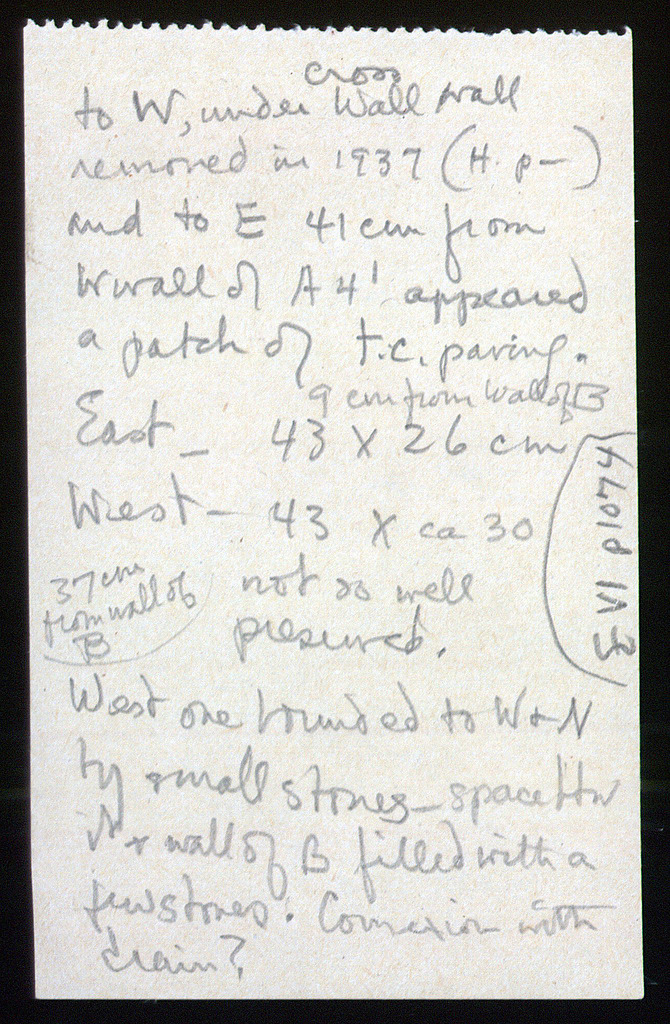 cross
to W, under Wall wall
removed in 1937 (H. p—)
and to E 41 cm from
W wall of A 4' appeared
a patch of t.c. paving.
9 cm from Wall of B
East — 43 X 26 cm
West — 43 X ca 30
37 cm
from wall of
B
not so well
preserved.
West one bounded to W + N
by small stones — space btw
it + wall of B filled with a
few stones. Connexion with
drain?